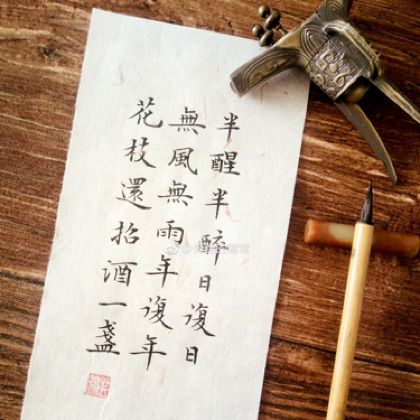 半醒半醉日復日
無風無雨年復年
花枝還招酒一盞